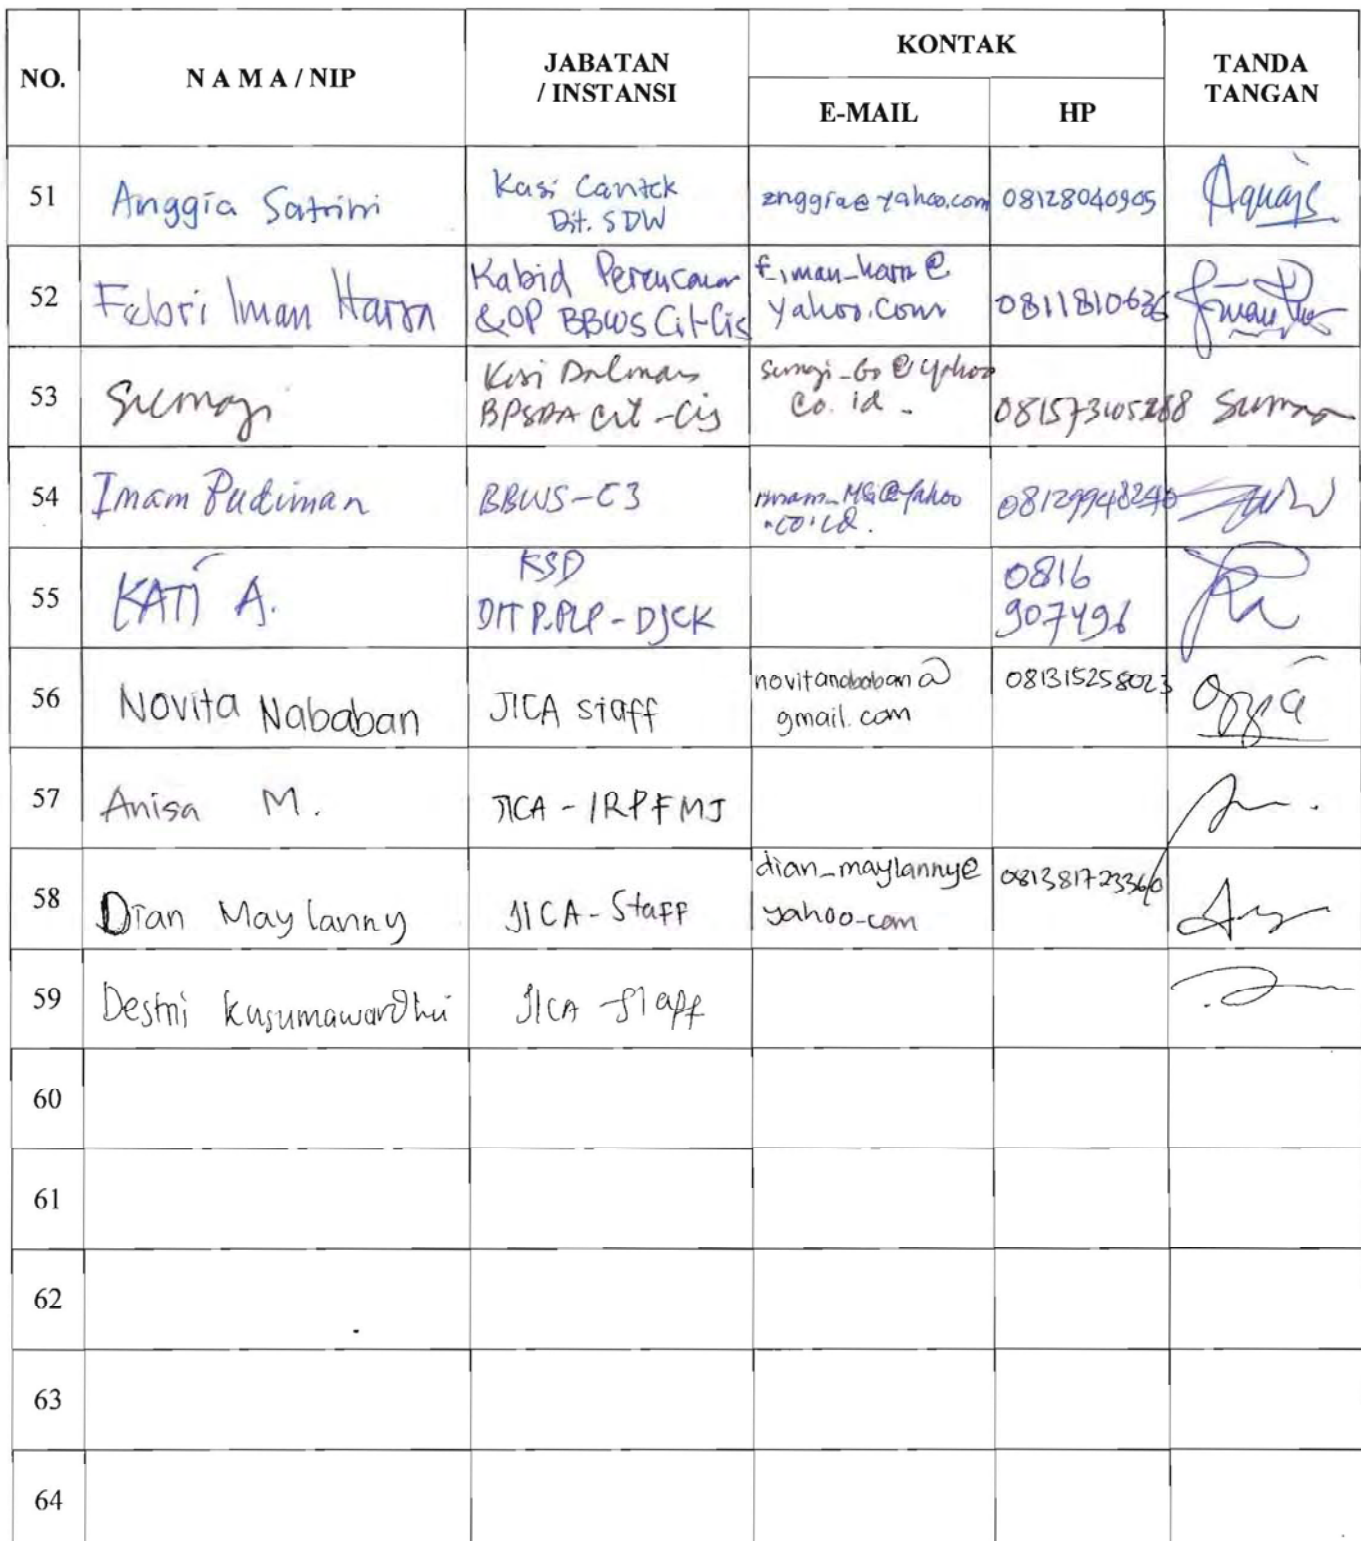 NO.
N A M A / NIP
JABATAN
/ INSTANSI
KONTAK
E-MAIL
HP
TANDA
TANGAN
51
Anggia Satrini
Kasi Cantek
Dit. SDW
znggia@yahoo.com
08128040905
52
Febri Iman Harta
Kabid Perencanaan
& OP BBWS Cit-Cis
yahoo.com
0811810636
53
Sumagi
BPSDA Cit-Cis
co.id
54
Imam Budiman
BBWS-C3
55
KATI A.
KSD
DIT P.PLP - DJCK
0816
907496
56
Novita Nababan
JICA staff
novitanababan@
gmail.com
081315258023
57
Anisa M.
JICA - IRPFMJ
58
Dian Maylanny
JICA - Staff
dian_maylanny@
yahoo.com
081381723360
59
Destri Kusumawardhii
JICA - Staff
60
61
62
63
64